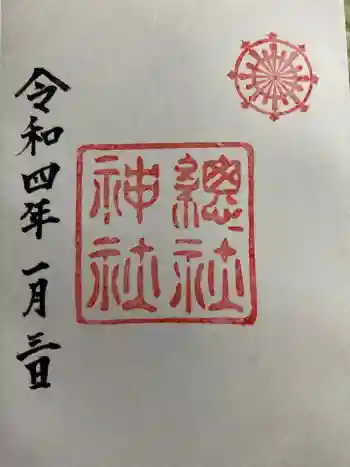 總社
神社
令和四年一月三日